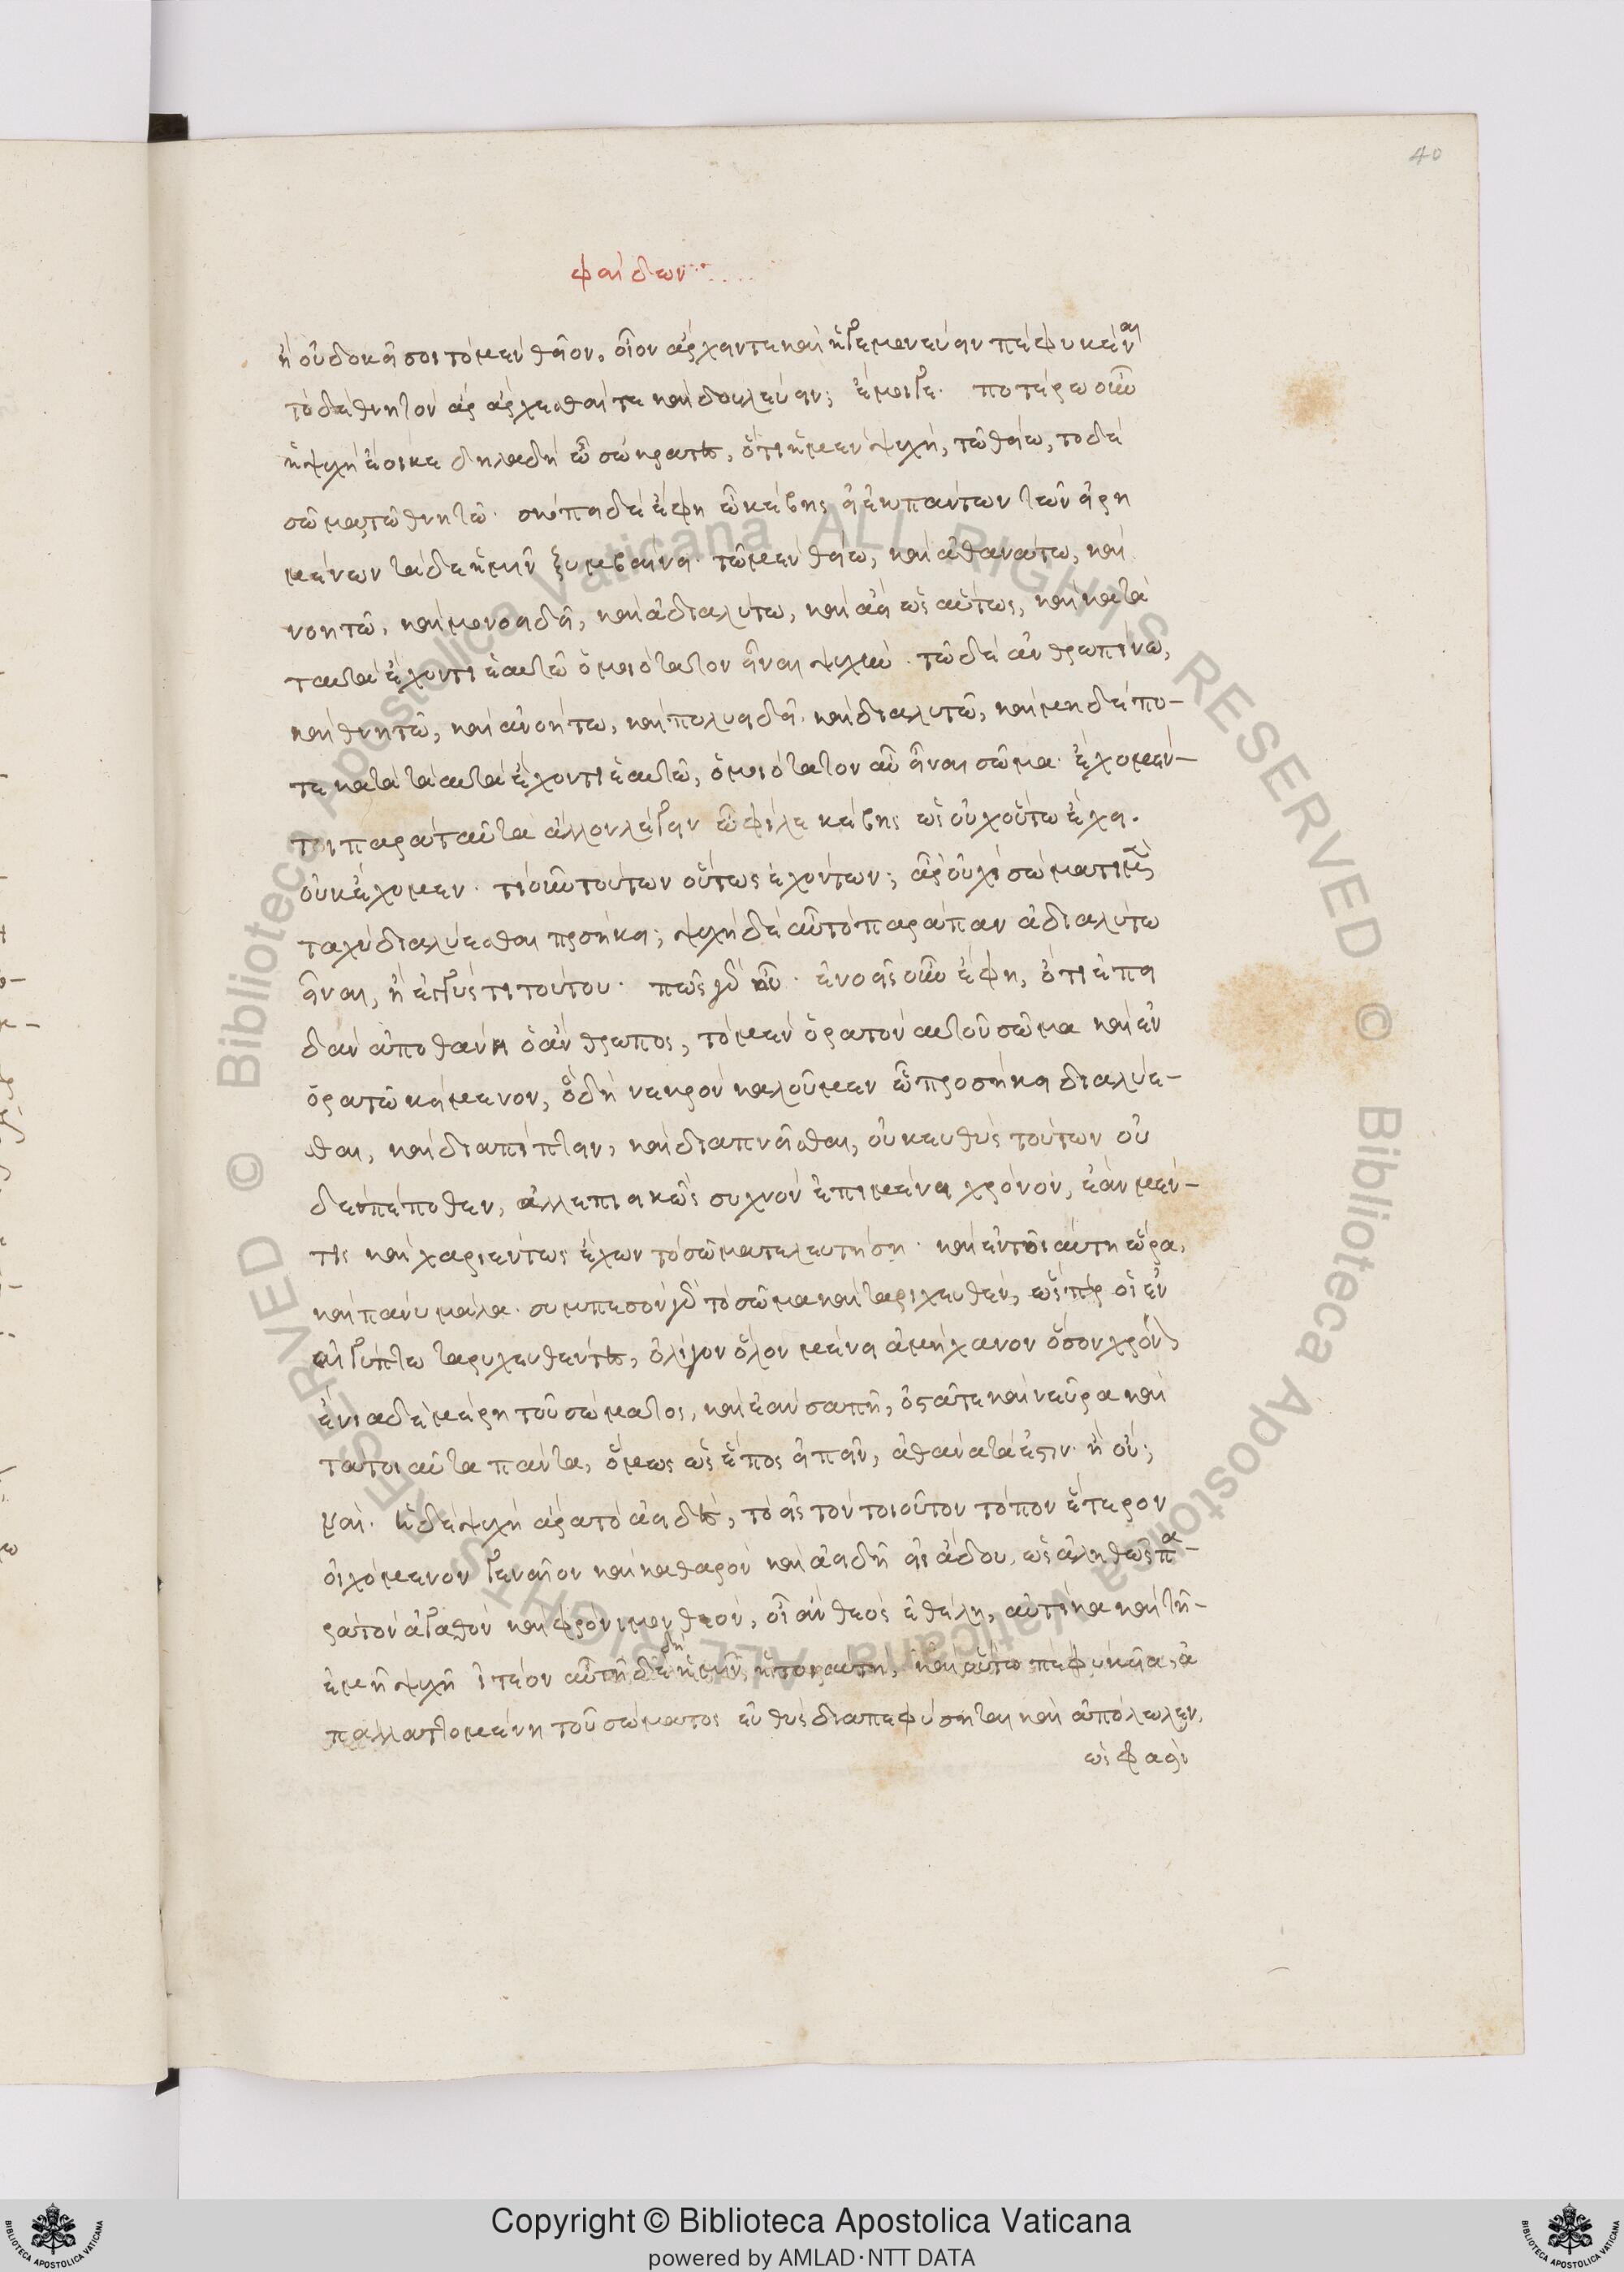 40
φαίδων
ἢ οὐ δοκεῖ σοι τὸ μὲν θεῖον, οἷον ἄρχειν τε καὶ ἡγεμονεύειν πεφυκέναι
τὸ δὲ θνητὸν ἄρ ἄρχεσθαί τε καὶ δουλεύειν; ἔμοιγε. ποτέρω οὖν
ἡ ψυχὴ ἔοικε δηλαδὴ ὦ σώκρατες, ὅτι ἡ μὲν ψυχὴ, τῶ θείω, το δὲ
σῶμα τῶ θνητῶ. σκόπει δὲ ἔφη ὦ κέβης εἰ ἐκ πάντων τῶν εἰρη
μένων τάδε ἡμῖν ξυμβαίνει. τῶ μὲν θείω, καὶ ἀθανάτω, καὶ
νοητῶ, καὶ μονοειδεῖ, καὶ ἀδιαλύτω, καὶ ἀεὶ ὡς αὔτως, καὶ κατὰ
ταυτὰ ἔχοντι ἑαυτῶ ὁμοιότατον εἶναι ψυχὴν. τῶ δὲ ἀνθρωπίνω,
καὶ θνητῶ, καὶ ἀνοήτω, καὶ πολυειδεῖ. καὶ διαλυτῶ, καὶ μηδέπο-
τε κατὰ τὰ αυτὰ ἔχοντι ἑαυτῶ, ὁμοιότατον αὖ εἶναι σῶμα. ἔχομέν-
τοι παρὰ ταῦτα ἄλλον λέγειν ὦ φίλε κέβης ὡς οὐχ οὕτω ἔχει.
οὐκ ἔχομεν. τί οὖν τούτων οὕτως ἐχόντων; ἆρ οὐχὶ σώματι μὲν
ταχὺ διαλύεσθαι προσήκει; ψυχὴ δὲ αὖ τὸ παράπαν ἀδιαλύτω
εἶναι, ἢ ἐγγύς τι τούτου. πῶς γὰρ οὔ. ἐννοεῖς οὖν ἔφη, ὅτι ἐπει
δὰν ἀποθάνη ὁ ἄνθρωπος, τὸ μὲν ὁρατὸν αυτοῦ σῶμα καὶ ἐν
ὁρατῶ κείμενον, ὃ δὴ νεκρὸν καλοῦμεν ὧ προσήκει διαλύε-
σθαι, καὶ διαπίπτειν, καὶ διαπνεῖσθαι, οὐκ ευθὺς τούτων οὐ
δὲν πέπονθεν, ἀλλ επιεικῶς συχνὸν ἐπιμένει χρόνον, ἐὰν μέν-
τις καὶ χαριέντως ἔχων τὸ σῶμα τελευτήση. καὶ ἐν τοιαύτη ὥρα,
καὶ πάνυ μάλα. συμπεσὸν γὰρ τὸ σῶμα καὶ ταριχευθὲν, ὥσπερ οἱ ἐν
αἰγύπτω ταρυχευθέντες, ὀλίγου ὅλον μένει ἀμήχανον ὅσον χρόνον
ἔνια δὲ μέρη τοῦ σώματος, καὶ ἐὰν σαπῆ, ὀστᾶ τε καὶ νεῦρα καὶ
τὰ τοιαῦτα πάντα, ὅμως ὡς ἔπος εἰπεῖν, ἀθάνατά ἐστιν. ἢ οὔ;
ναὶ. ἡ δὲ ψυχὴ ἄρα τὸ ἀειδὲς, τὸ εἰς τὸν τοιοῦτον τόπον ἕτερον
οἰχόμενον γενναῖον καὶ καθαρὸν καὶ ἀειδῆ εἰς ἅδου, ὡς ἀληθῶς πα-
ρὰ τὸν ἀγαθὸν καὶ φρόνιμον θεὸν, οἷ ἂν θεὸς ἐθέλη, αὐτίκα καὶ τῆ-
ἐμῆ ψυχῆ ἰτέον αὕτη δὲ δὴ ἡμῖν, ἡ τοιαύτη, καὶ οὕτω πεφυκυῖα, ἀ
παλλαττομένη τοῦ σώματος εὐθὺς διαπεφύσηται καὶ ἀπόλωλεν,
ὥς φασὶν
Copyright © Biblioteca Apostolica Vaticana
powered by AMLAD·NTT DATA